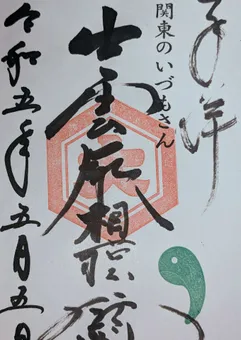 奉拝
関東のいづもさん
出雲 相
令和五年五月五日